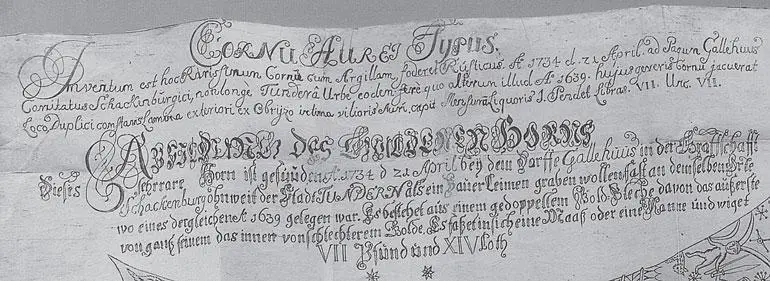 CORNU AUREI TYPUS.
Inventum est hoc Rarissimum Cornu cum Argillam foderet Rusticus Aº 1734 d. 21 April. ad Pagum Gallehuus
Comitatus Schackenburgici, non longe Tunderâ Urbe eodem fere quo alterum illud Aº 1639. hujus generis Cornu jacuerat
Loco Duplici constans Lamina exteriori ex Obrÿzo intima vilioris Auri, capit Mensuram liquoris I. Pendet Libras. VII. Unc. VII.
ABBILDUNG DES GÜLDENEN HORNS
Dieses sehr rare Horn ist gefunden Aº 1734 d 21 April bey dem Dorffe Gallehuus in der Graffschafft
Schackenburg ohnweit der Stadt TUNDERN als ein Bauer Leimen graben wollen fast an demselben Orte
wo eines dergleichen Aº 1639 gelegen war. Es bestehet aus einem gedoppeltem Gold-Bleche davon das äuserste
von gantz feinem das innere von schlechterem Golde. Es faßet in sich eine Maaß oder eine Kanne und wiget
VII Pfund und XIV Loth